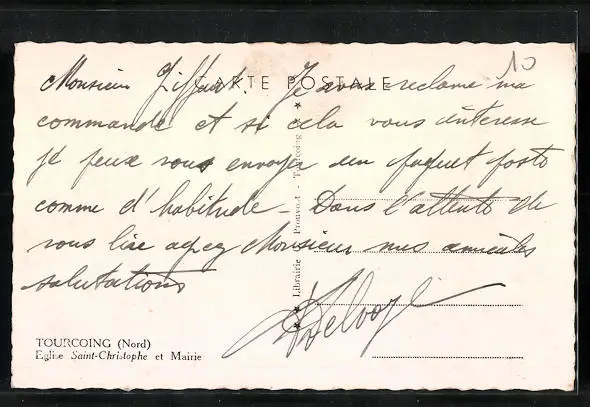 10
CARTE POSTALE
Monsieur Je vous reclame ma
commande et si cela vous interesse
je peux vous envoyer un paquet poste
comme d'habitude - Dans l'attente de
vous lire agreez Monsieur mes amicales
salutations
Librairie - Tourcoing
TOURCOING (Nord)
Eglise Saint-Christophe et Mairie